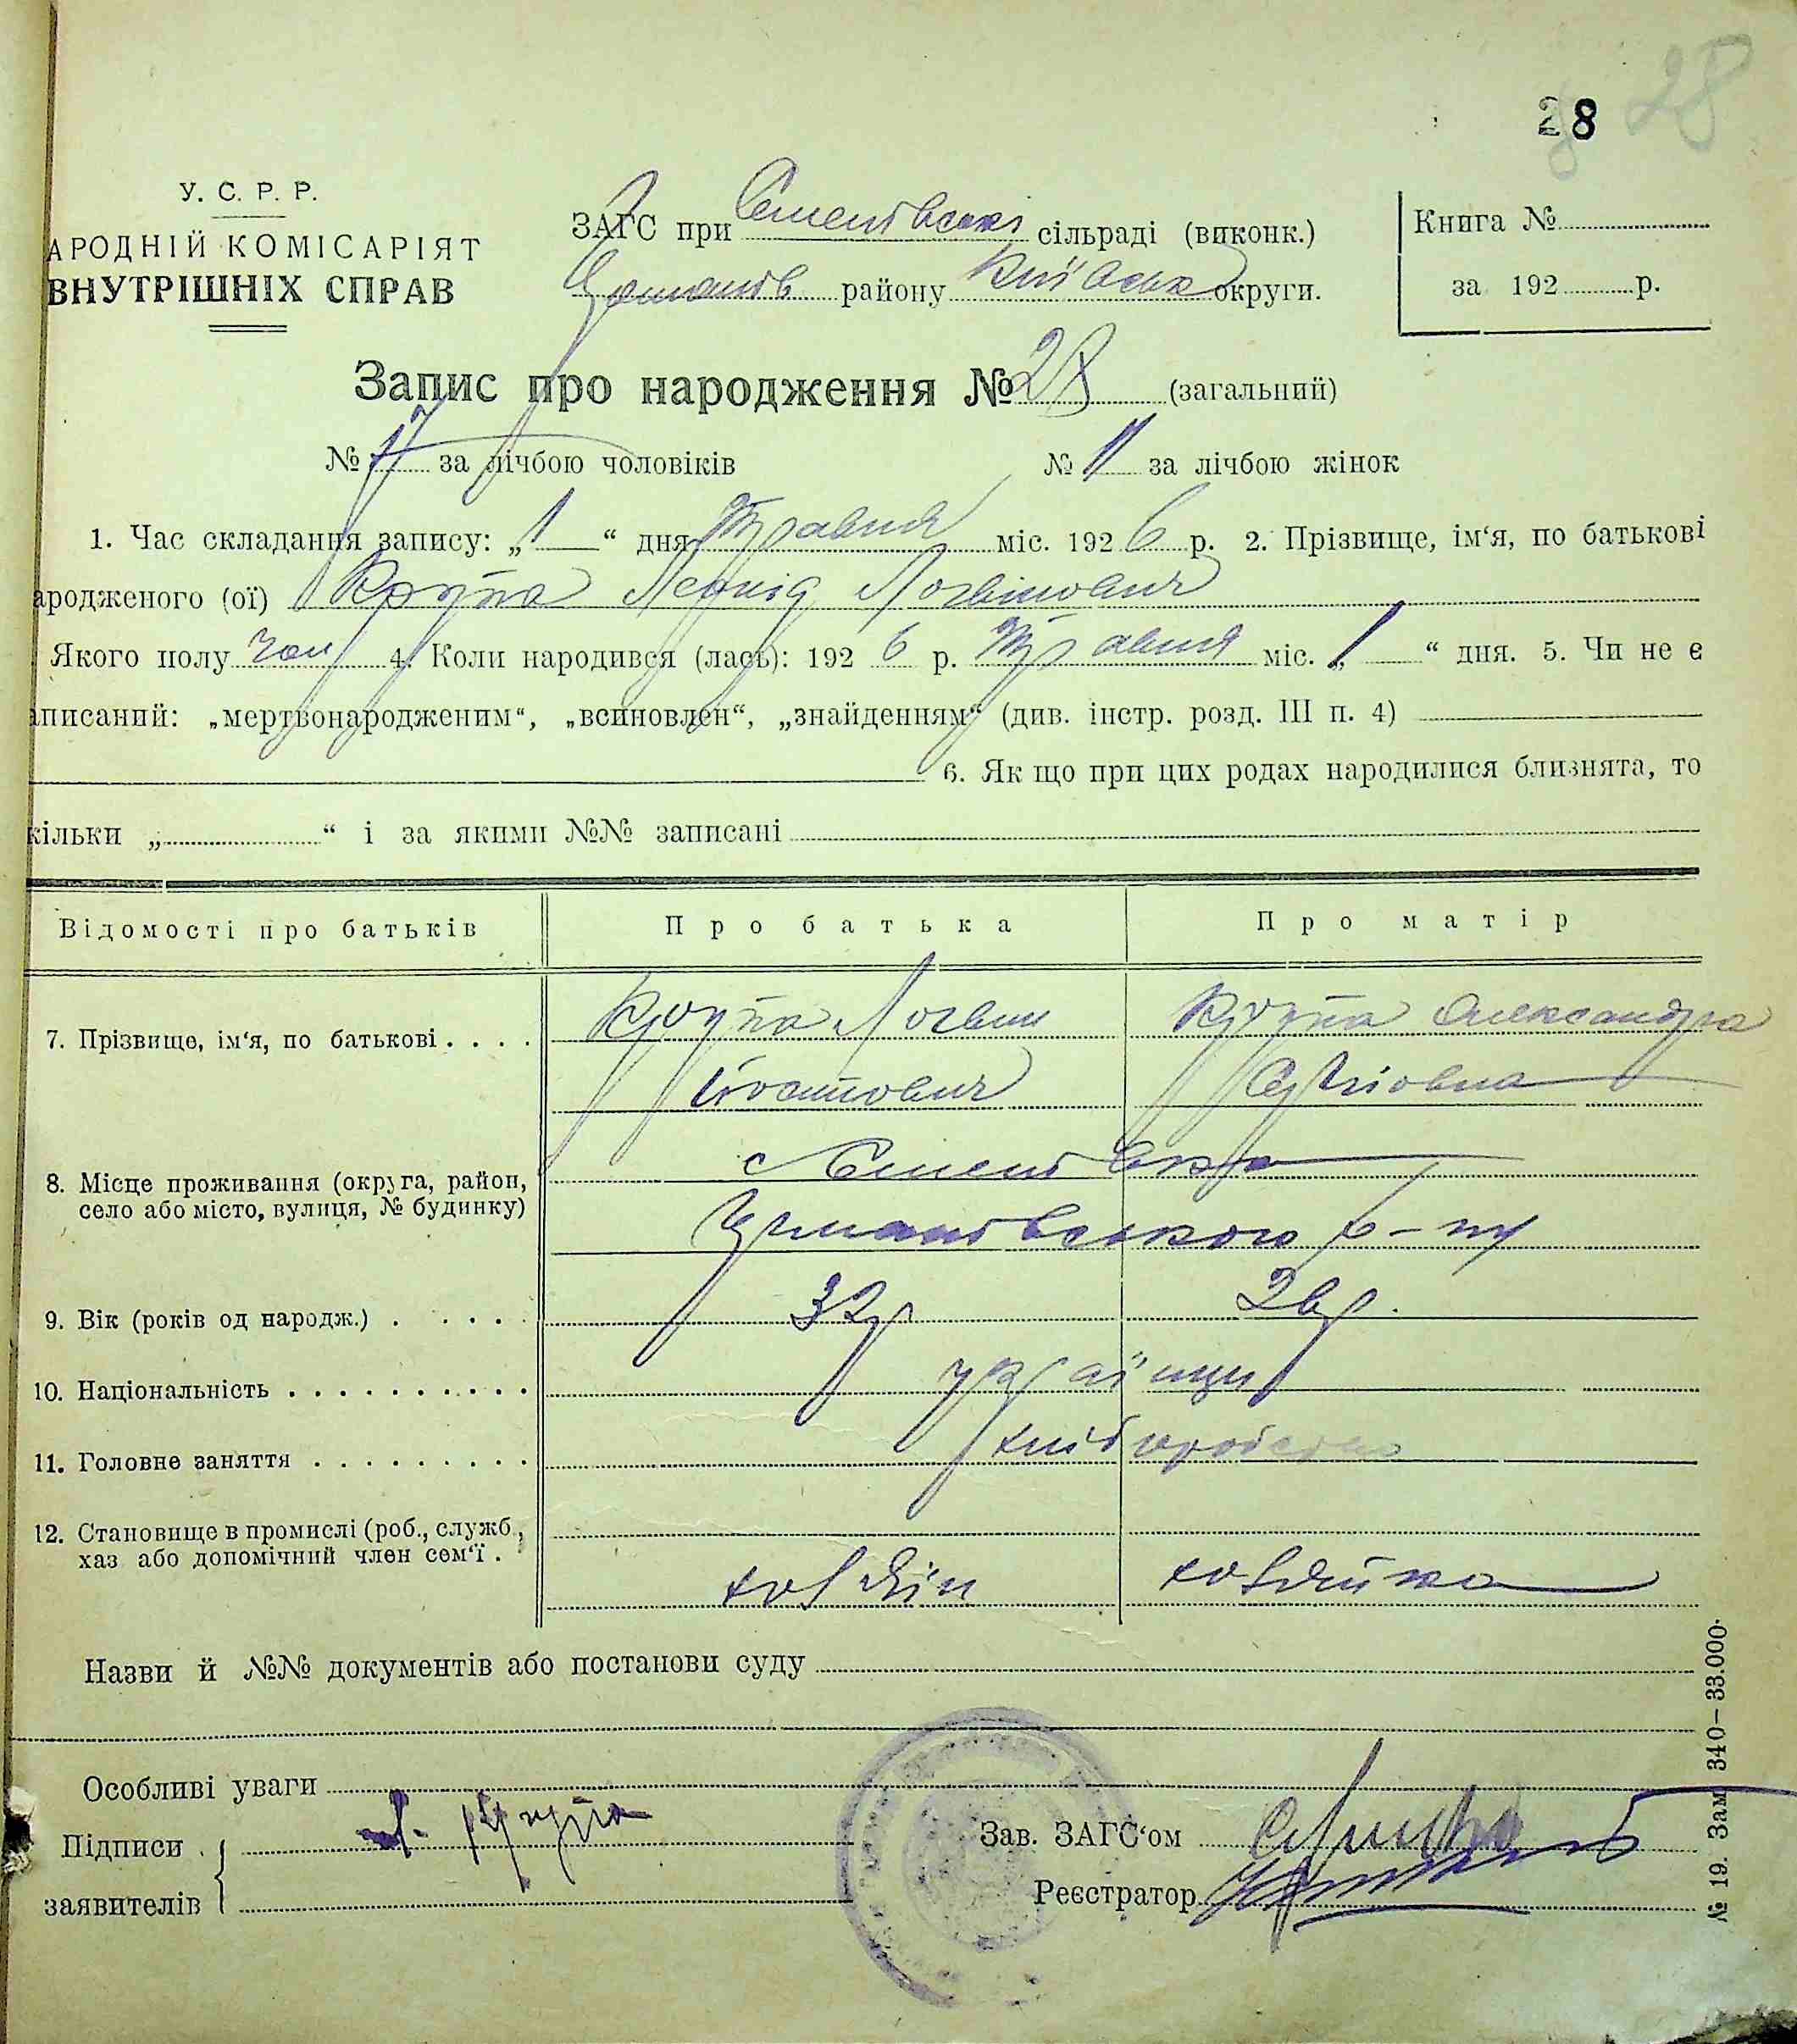 28 28
У. С. Р. Р.
АРОДНІЙ КОМІСАРІЯТ
ВНУТРІШНІХ СПРАВ
ЗАГС при Семенівські сільраді (виконк.)
району Київськ округи.
Книга №
за 192 р.
Запис про народження № 28 (загальний)
№ 17 за лічбою чоловіків № 11 за лічбою жінок
1. Час складання запису: „ 1 “ дня Травня міс. 192 6 р. 2. Прізвище, ім‘я, по батькові
ародженого (ої) Крупа Леонід Логвинович
Якого полу чол 4. Коли народився (лась): 192 6 р. Травня міс. „ 1 “ дня. 5. Чи не є
аписаний: „мертвонародженим“, „всиновлен“, „знайденням“ (див. інстр. розд. III п. 4)
6. Як що при цих родах народилися близнята, то
кільки „ “ і за якими №№ записані
Відомості про батьків Про батька Про матір
7. Прізвище, ім‘я, по батькові . . . . Крупа Логвин Крупа Олександра
8. Місце проживання (округа, район, с Семенівка
село або місто, вулиця, № будинку) р-ну
9. Вік (років од народж.) . . . . . 32р 26р.
10. Національність . . . . . . . . . . українці
11. Головне заняття . . . . . . . . . хліборобство
12. Становище в промислі (роб., служб.,
хаз або допомічний член сем‘ї . хозяїн хозяйка
Назви й №№ документів або постанови суду
Особливі уваги
Підписи Крупа Зав. ЗАГС‘ом
заявителів Реєстратор
№ 19. Зам 340–33.000.